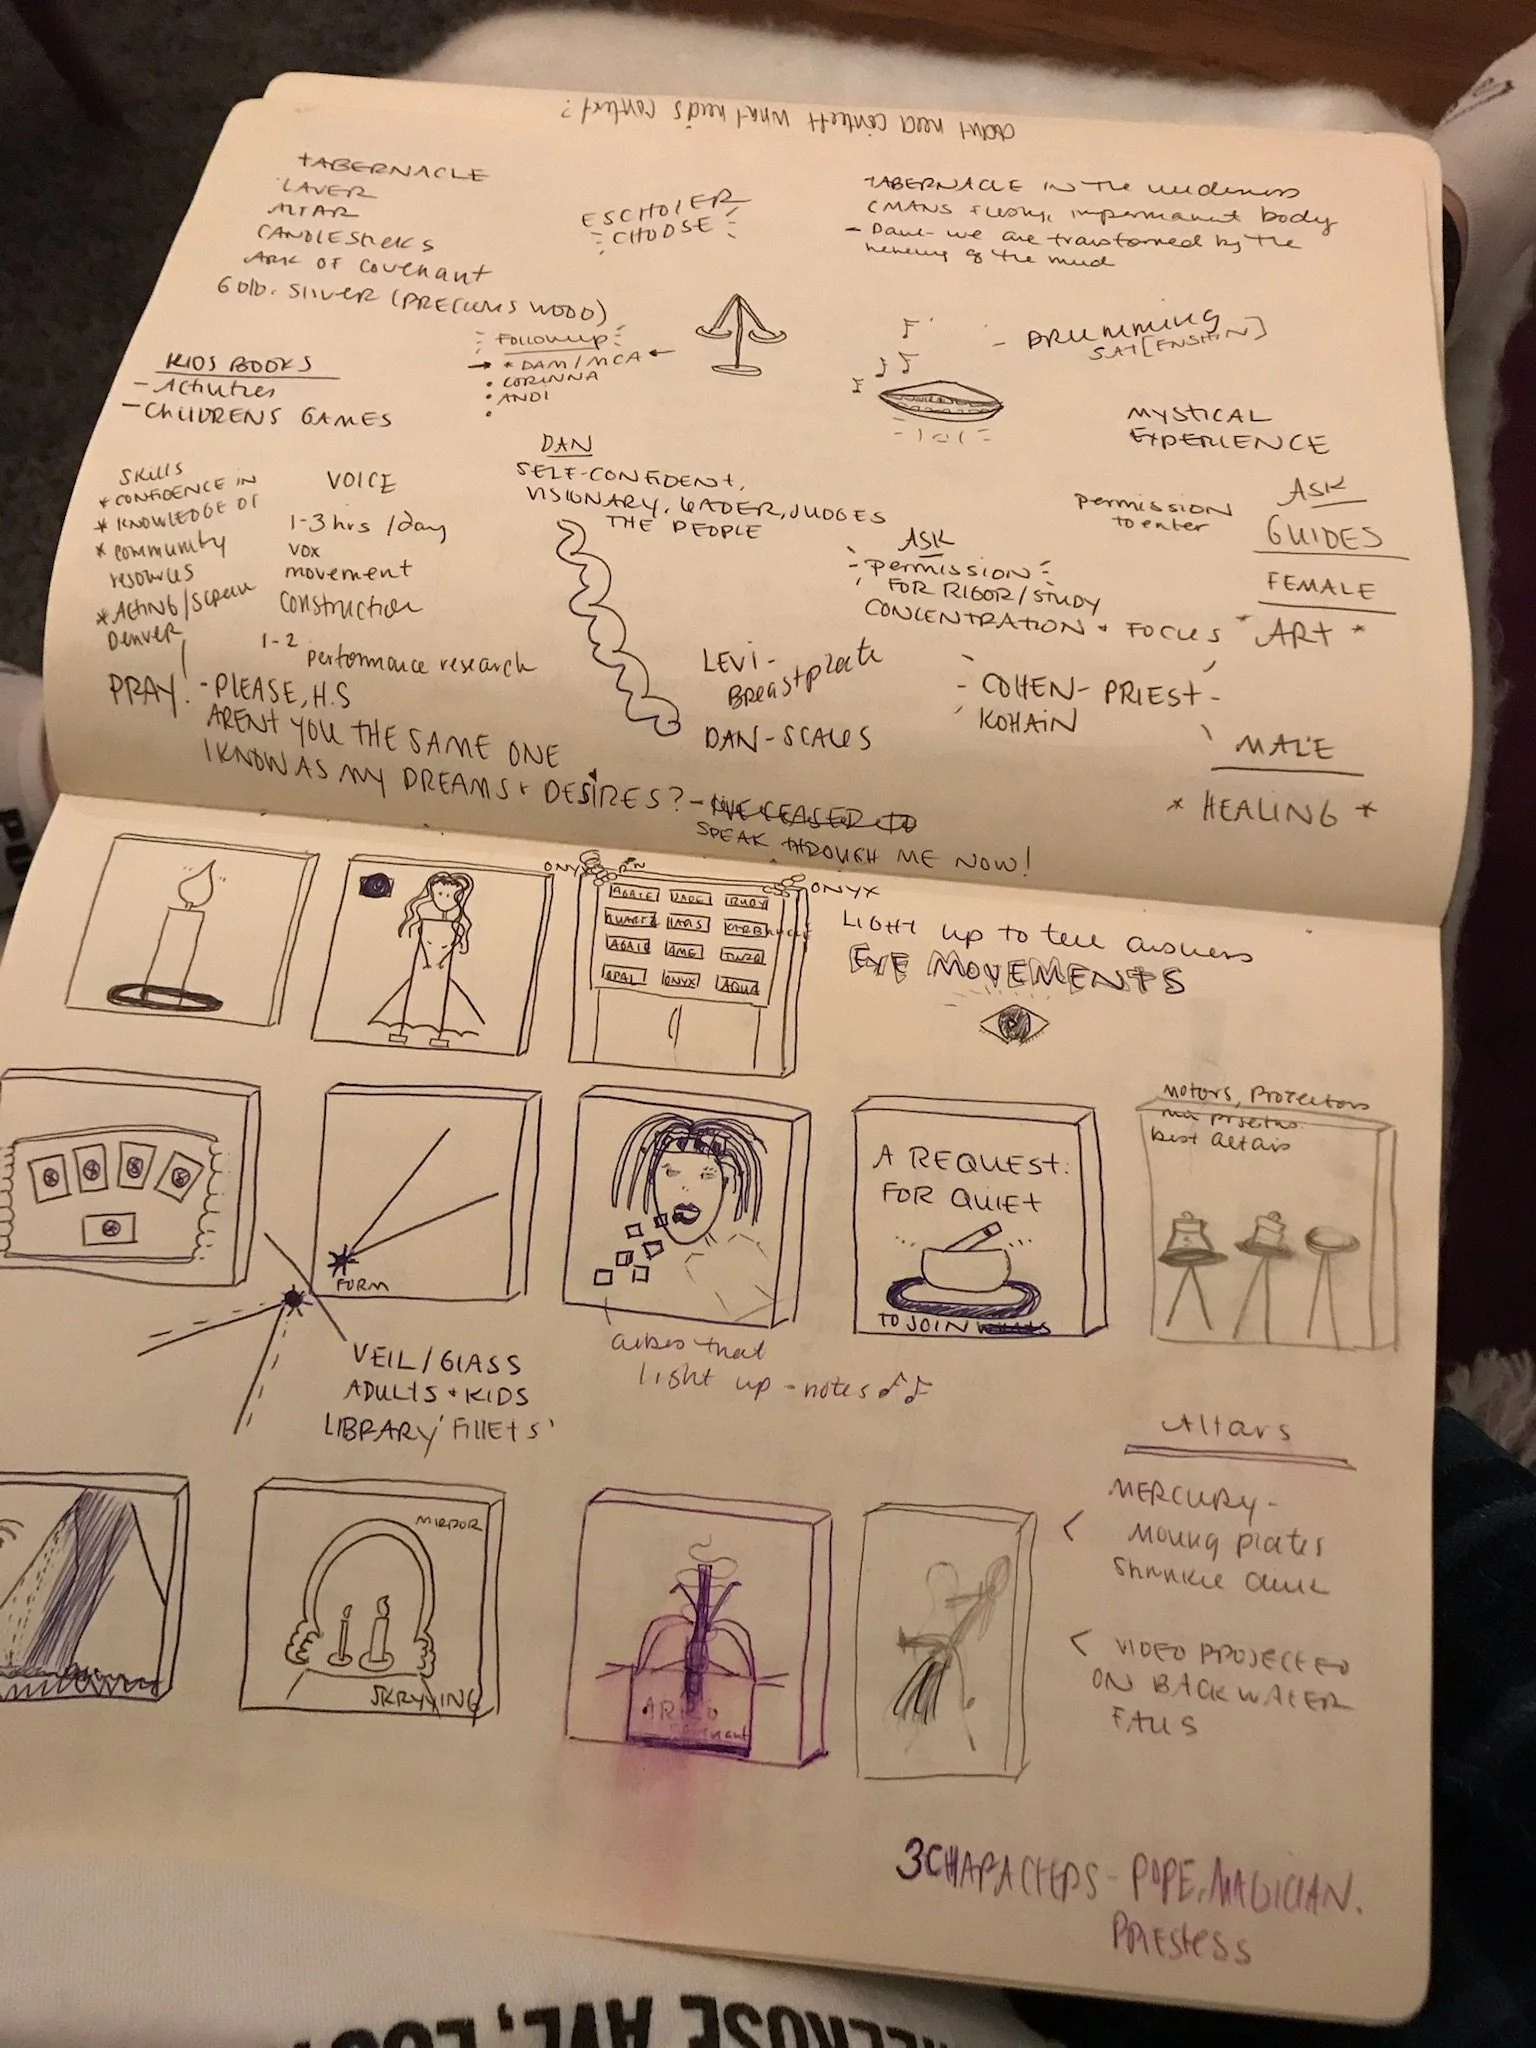 didn't need context what needs context?
TABERNACLE
LAVER
ALTAR
CANDLESTICKS
ARK OF COVENANT
GOLD. SILVER (PRECIOUS WOOD)
ESCHOIER
CHOOSE
TABERNACLE IN THE
(MANS FLESHY, impermanent body
- Dave- we are transformed by the
of the mind
FOLLOWUP
* DAM/MCA
• CORINNA
• ANDI
•
- DRUMMING
KIDS BOOKS
- Activities
- CHILDRENS GAMES
MYSTICAL
EXPERIENCE
DAN
SELF-CONFIDENT,
VISIONARY, LEADER, JUDGES
THE PEOPLE
Skills
* CONFIDENCE IN
* KNOWLEDGE OF
* community
resources
* ACTING/Screen
Denver
VOICE
1-3 hrs/day
VOX
movement
construction
1-2 performance research
ASK
permission
FOR RIGOR/STUDY
CONCENTRATION + FOCUS
permission
to enter
ASK
GUIDES
FEMALE
* ART *
LEVI-
Breastplate
DAN-SCALES
- COHEN-PRIEST-
KOHAIN
MALE
* HEALING *
PRAY! - PLEASE, H.S
ARENT YOU THE SAME ONE
I KNOW AS MY DREAMS + DESIRES? -
SPEAK THROUGH ME NOW!
ONYX
ONYX
AGATE JADE RUBY
QUARTZ
AGATE AME
OPAL ONYX AQUA
LIGHT up to tell answers
EYE MOVEMENTS
FORM
VEIL/GLASS
ADULTS + KIDS
LIBRARY 'FILLETS'
cubes that
light up - notes
A REQUEST:
FOR QUIET
TO JOIN
motors, projectors
best altars
Altars
MERCURY-
< moving plates
< VIDEO PROJECTED
ON BACK WATER
FALLS
MIRROR
SKRYYING
ARK O
3 CHARACTERS - POPE, MAGICIAN.
PRIESTESS
MELROSE AVE, LOS